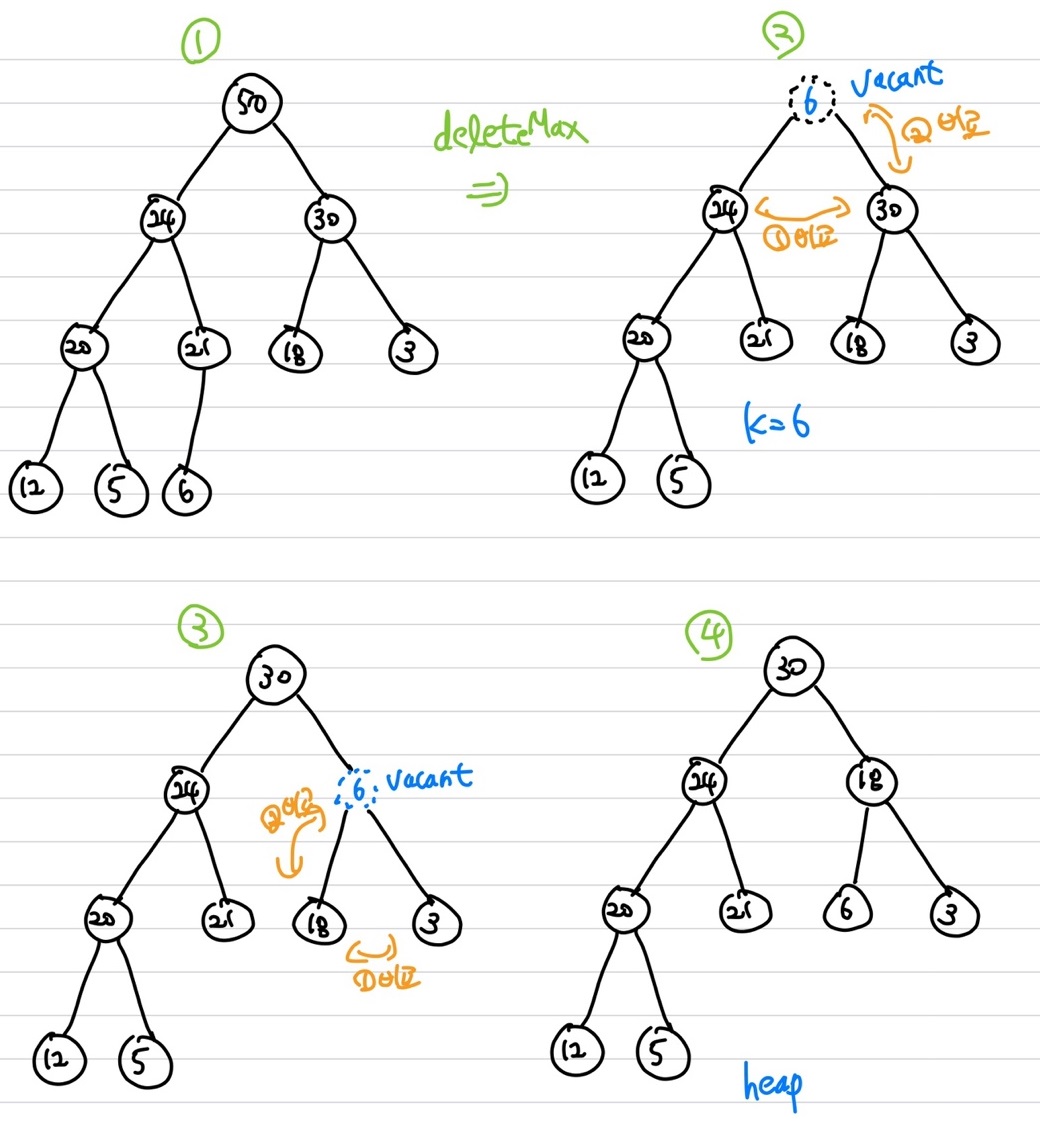 ①
50
24 30
20 21 18 3
12 5 6
deleteMax
⇒
②
6 vacant
② 비교
24 30
① 비교
20 21 18 3
12 5
k=6
③
30
24 6 vacant
② 비교
20 21 18 3
① 비교
12 5
④
30
24 18
20 21 6 3
12 5
heap